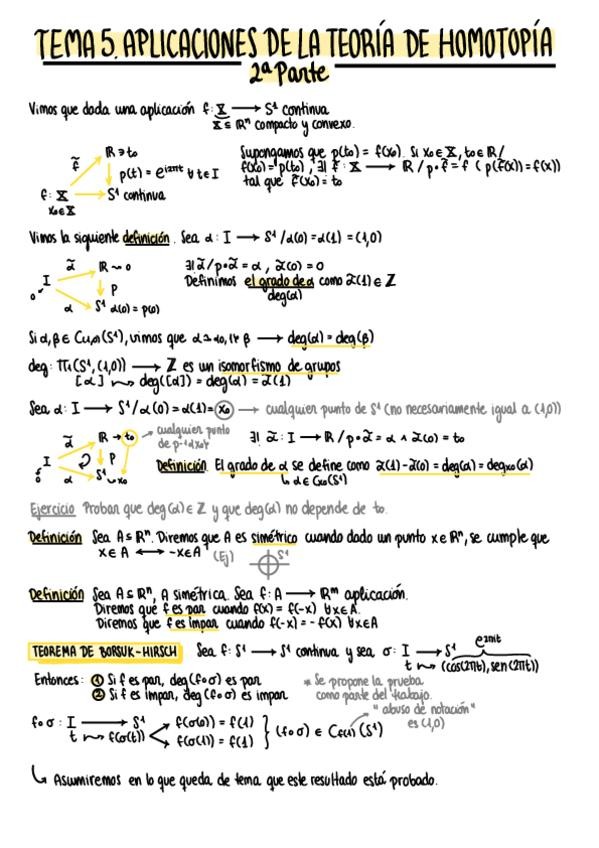 TEMA 5. APLICACIONES DE LA TEORÍA DE HOMOTOPÍA
2ª Parte
Vimos que dada una aplicación f: X → S¹ continua
X ⊆ ℝⁿ compacto y convexo.
f̃ ℝ ∋ t₀
p(t) = e^{i2πt} ∀ t ∈ I
f: X → S¹ continua
x₀ ∈ X
Supongamos que p(t₀) = f(x₀). Si x₀ ∈ X, t₀ ∈ ℝ /
f(x₀) = p(t₀), ∃! f̃: X → ℝ / p∘f̃ = f ( p(f̃(x)) = f(x))
tal que f̃(x₀) = t₀
Vimos la siguiente definición. Sea α: I → S¹ / α(0) = α(1) = (1,0)
α̃ ℝ ~ 0
I p
0 α S¹ α(0) = p(0)
∃! α̃ / p∘α̃ = α, α̃(0) = 0
Definimos el grado de α como α̃(1) ∈ ℤ
deg(α)
Si α, β ∈ C₍₁,₀₎(S¹), vimos que α ≃₍₀,₁₎ β → deg(α) = deg(β)
deg: π₁(S¹, (1,0)) → ℤ es un isomorfismo de grupos
[α] ⇝ deg([α]) = deg(α) = α̃(1)
Sea α: I → S¹ / α(0) = α(1) = x₀ → cualquier punto de S¹ (no necesariamente igual a (1,0))
α̃ ℝ → t₀ → cualquier punto
de p⁻¹{x₀}
I p
0 α S¹ x₀
∃! α̃: I → ℝ / p∘α̃ = α ∧ α̃(0) = t₀
Definición. El grado de α se define como α̃(1) - α̃(0) = deg(α) = deg_{x₀}(α)
↳ α ∈ C_{x₀}(S¹)
Ejercicio Probar que deg(α) ∈ ℤ y que deg(α) no depende de t₀.
Definición Sea A ⊆ ℝⁿ. Diremos que A es simétrico cuando dado un punto x ∈ ℝⁿ, se cumple que
x ∈ A ⟷ -x ∈ A (Ej) S¹
Definición Sea A ⊆ ℝⁿ, A simétrica. Sea f: A → ℝᵐ aplicación.
Diremos que f es par cuando f(x) = f(-x) ∀x∈A.
Diremos que f es impar cuando f(-x) = -f(x) ∀x∈A
TEOREMA DE BORSUK-HIRSCH Sea f: S¹ → S¹ continua y sea σ: I → S¹ e^{2πit}
t ⇝ (cos(2πt), sen(2πt))
Entonces: ① Si f es par, deg(f∘σ) es par
② Si f es impar, deg(f∘σ) es impar
* Se propone la prueba
como parte del trabajo.
"abuso de notación"
es (1,0)
f∘σ: I → S¹ f(σ(0)) = f(1)
t ⇝ f(σ(t)) f(σ(1)) = f(1) } (f∘σ) ∈ C_{f(1)}(S¹)
↳ Asumiremos en lo que queda de tema que este resultado está probado.